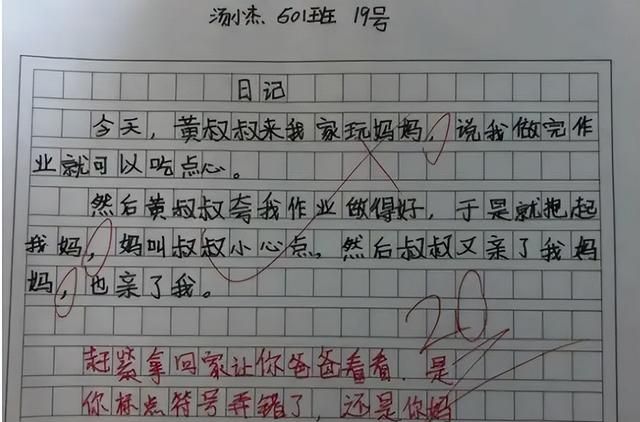 汤小杰. 601班 19号
日记
今天，黄叔叔来我家玩妈妈，说我做完作
业就可以吃点心。
然后黄叔叔夸我作业做得好，于是就抱起
我妈，妈叫叔叔小心点。然后叔叔又亲了我妈
妈，也亲了我。
20
赶紧拿回家让你爸爸看看.是
你标点符号弄错了，还是你妈